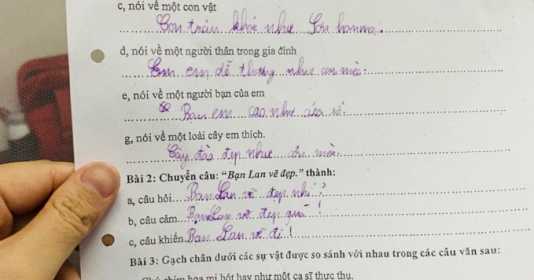 c, nói về một con vật
Con trâu khỏe như
d, nói về một người thân trong gia đình
Em em dễ thương như con mèo.
e, nói về một người bạn của em
Bạn em cao như sổ.
g, nói về một loài cây em thích.
Cây đào đẹp như
Bài 2: Chuyển câu: "Bạn Lan vẽ đẹp." thành:
a, câu hỏi....Bạn Lan vẽ đẹp nhỉ?
b, câu cảm....Bạn Lan vẽ đẹp quá!
c, câu khiến.Bạn Lan vẽ đi!
Bài 3: Gạch chân dưới các sự vật được so sánh với nhau trong các câu văn sau:
chim hoạ mi hót hay như một ca sĩ thực thụ.